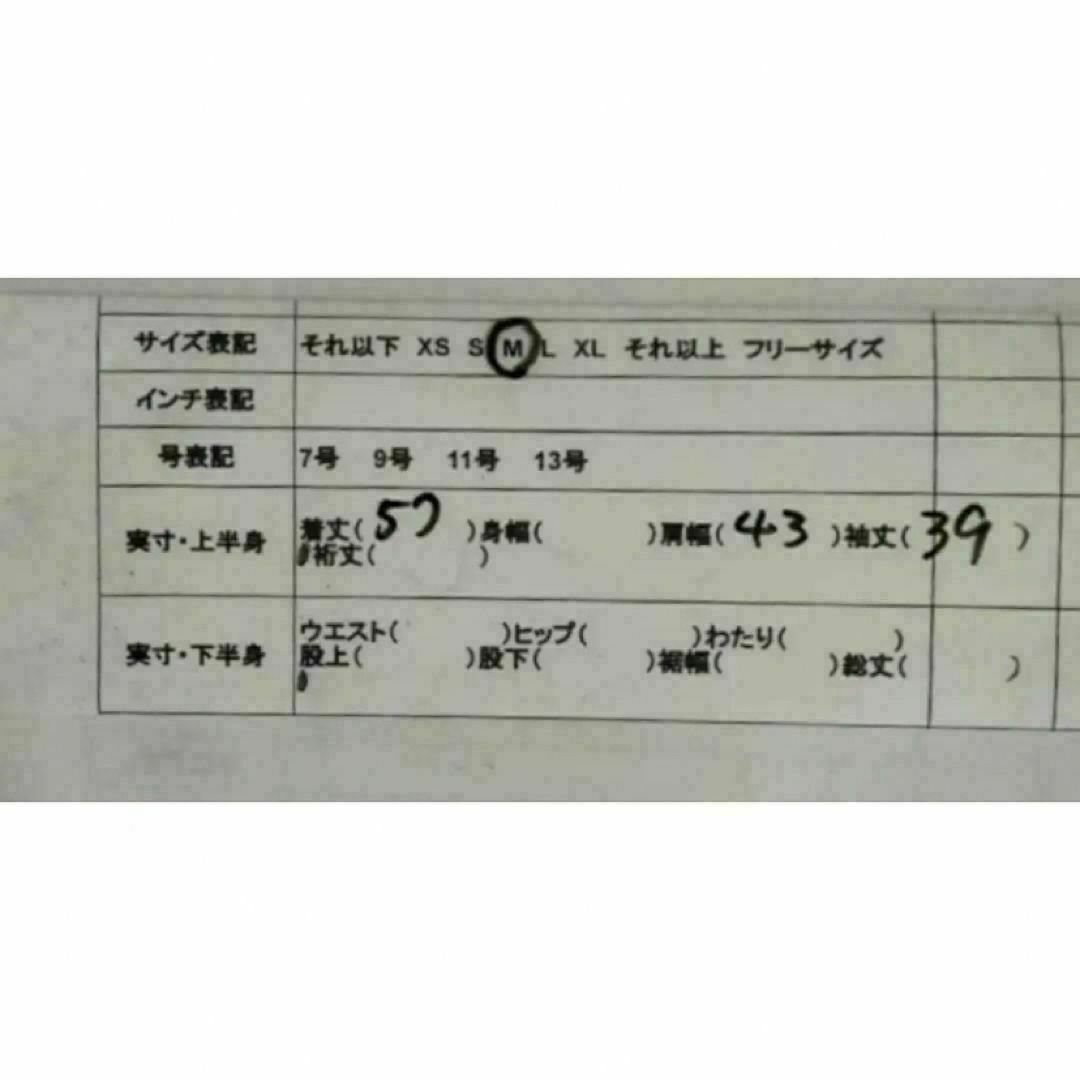 サイズ表記 それ以下 XS S M L XL それ以上 フリーサイズ
インチ表記
号表記 7号 9号 11号 13号
実寸・上半身 着丈( 57 )身幅( )肩幅( 43 )袖丈( 39 )
裄丈( )
実寸・下半身 ウエスト( )ヒップ( )わたり( )
股上( )股下( )裾幅( )総丈( )